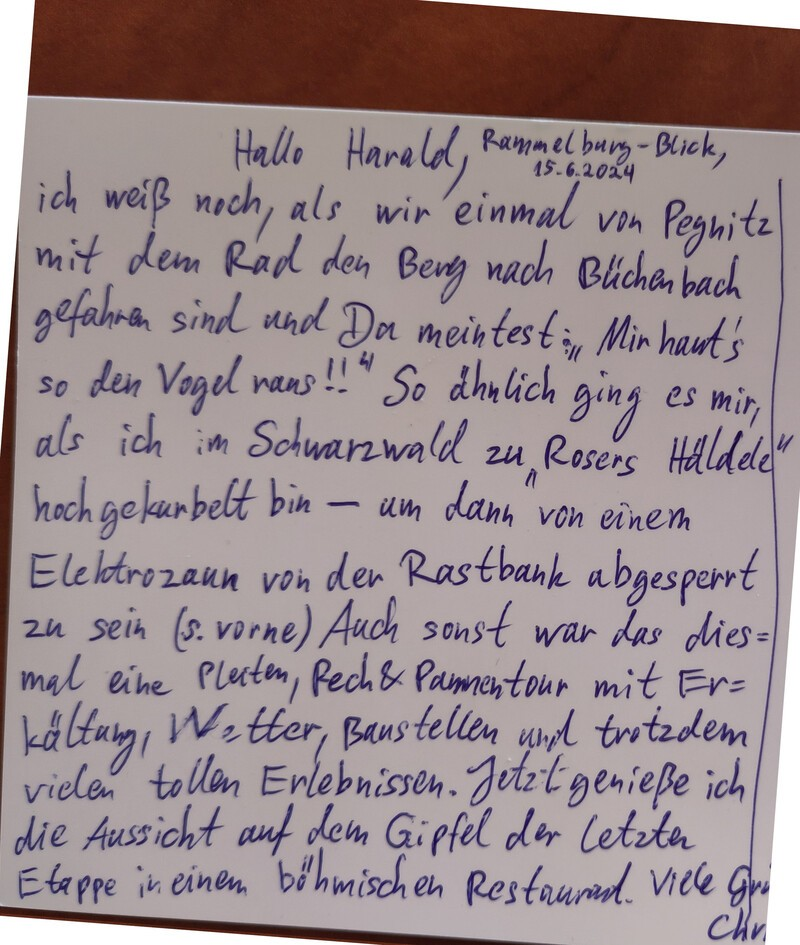 Hallo Harald, Rammelburg-Blick,
15.6.2024
ich weiß noch, als wir einmal von Pegnitz
mit dem Rad den Berg nach Büchenbach
gefahren sind und Du meintest: „Mir haut's
so den Vogel raus!!" So ähnlich ging es mir,
als ich im Schwarzwald zu „Rosers Häldele"
hochgekurbelt bin – um dann von einem
Elektrozaun von der Rastbank abgesperrt
zu sein (s. vorne) Auch sonst war das dies=
mal eine Pleiten, Pech & Pannentour mit Er=
kältung, Wetter, Baustellen und trotzdem
vielen tollen Erlebnissen. Jetzt genieße ich
die Aussicht auf dem Gipfel der letzten
Etappe in einem böhmischen Restaurant. Viele Grü
Chr